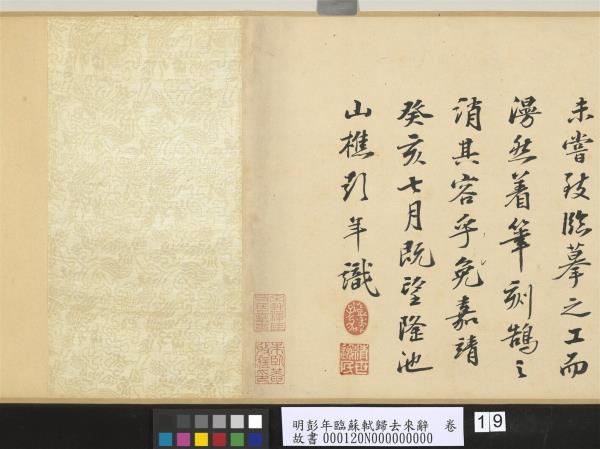 未嘗致臨摹之工而
漫然着筆刻鵠之
誚其容乎免嘉靖
癸亥七月既望隆池
山樵彭年識
明彭年臨蘇軾歸去來辭 卷
故書 000120N000000000
19